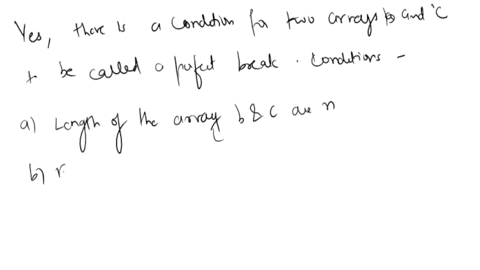 Yes, there is a condition for two arrays b and c
to be called a perfect break. Conditions -
a) Length of the array b & c are n
b) r